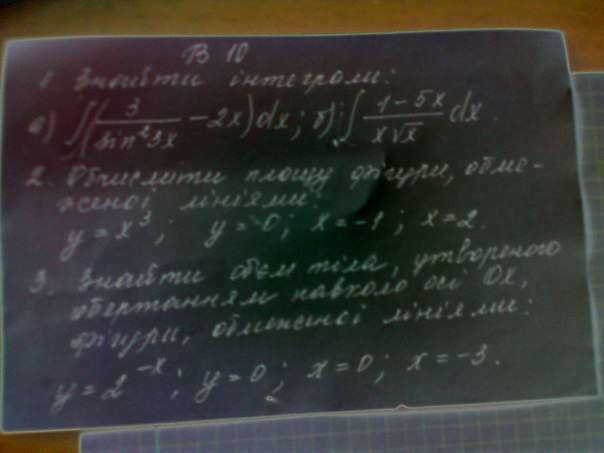 В 10
1 Знайти інтеграли:
а) ∫(3/sin²3x − 2x)dx; б) ∫ (1−5x)/(x√x) dx.
2. Обчислити площу фігури, обме-
женої лініями:
y = x³; y = 0; x = −1; x = 2.
3. Знайти обєм тіла, утвореного
обертанням навколо осі Ox,
фігури, обмеженої лініями:
y = 2⁻ˣ; y = 0; x = 0; x = −3.